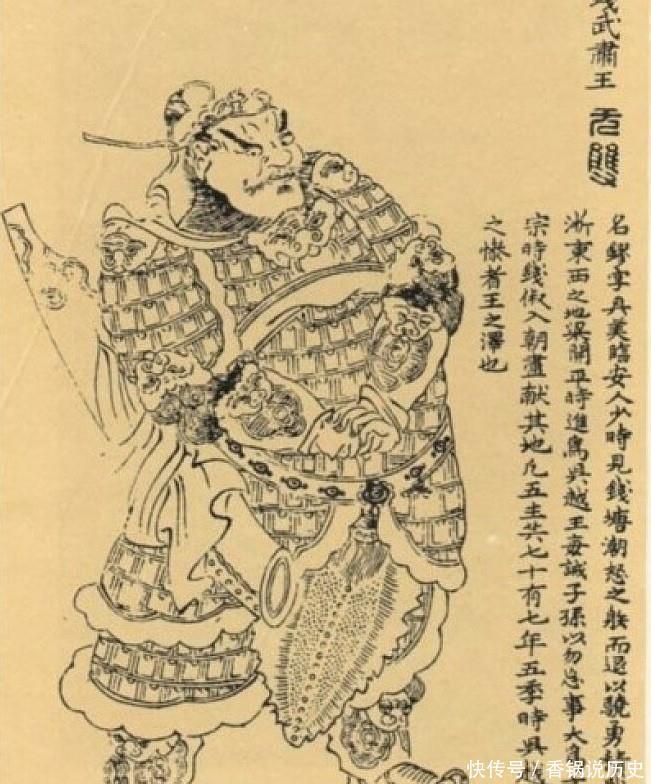 錢武肅王 无雙
名鏐字具美臨安人少時見錢塘潮怒之而退以驍勇
浙東西之地梁開平時進爲吳越王每誡子孫以勿忘事大
宗時錢俶入朝盡獻其地凡五主共七十有七年五季時吳
之慘者王之澤也
快传号 / 香锅说历史